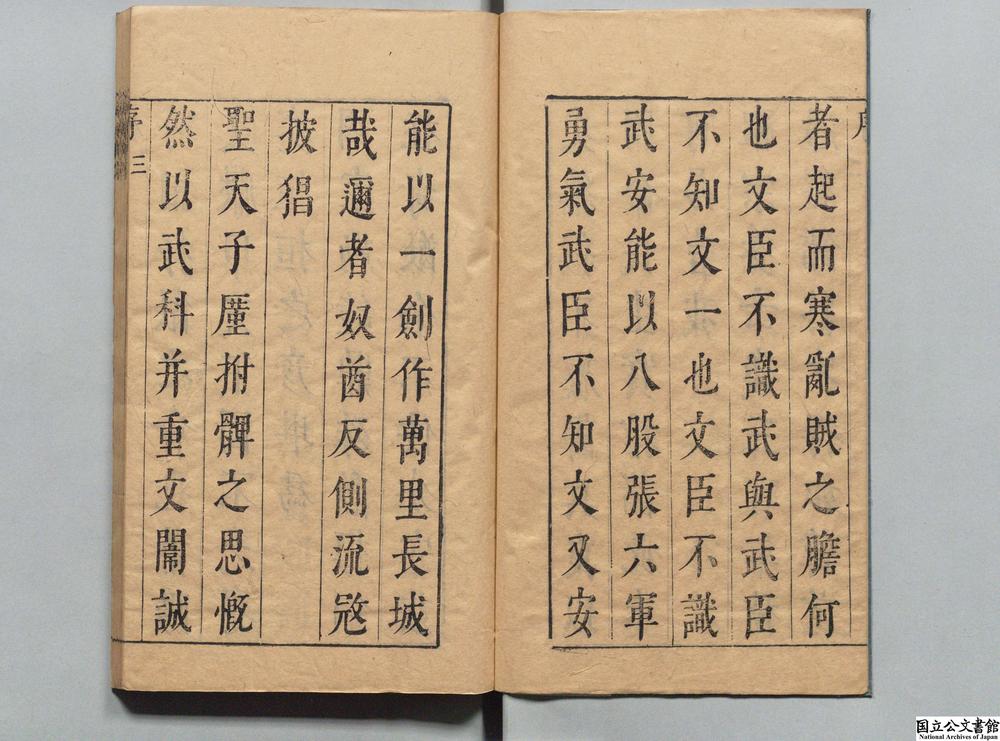 者起而寒亂賊之膽何
也文臣不識武與武臣
不知文一也文臣不識
武安能以八股張六軍
勇氣武臣不知文又安
能以一劍作萬里長城
哉邇者奴酋反側流寇
披猖
聖天子厪拊髀之思慨
然以武科并重文闈誠
序 三
国立公文書館
National Archives of Japan